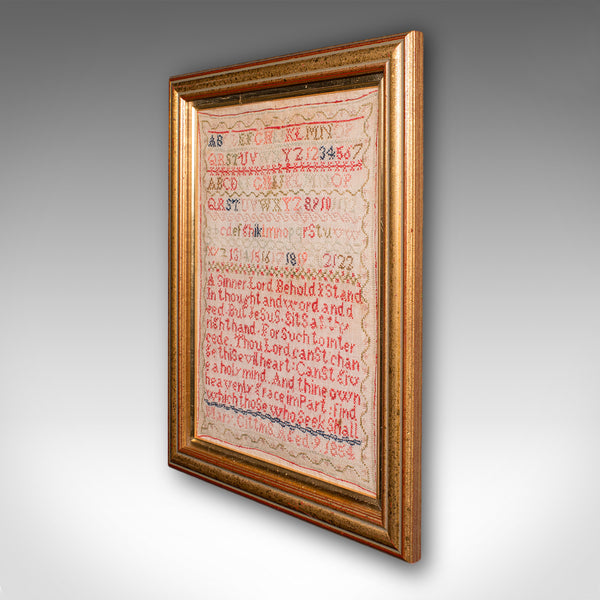 AB EFGH KLMNOP
QRSTUV YZ1234567
ABCD GHIJKLMNOP
QRST VWXYZ 8 9 10
bcdefghiklmnopqrstuv
13 14 15 16 17 18 19 21 22
A Sinner Lord Behold I Stand
In thought and word and d
eed. But Jesus. Sits at thy
right hand. For Such to inter
cede. Thou Lord canst chan
ge this evil heart: Canst giv
e a holy mind. And thine own
heavenly grace impart: find
which those who seek Shall
Aged. 9 1854